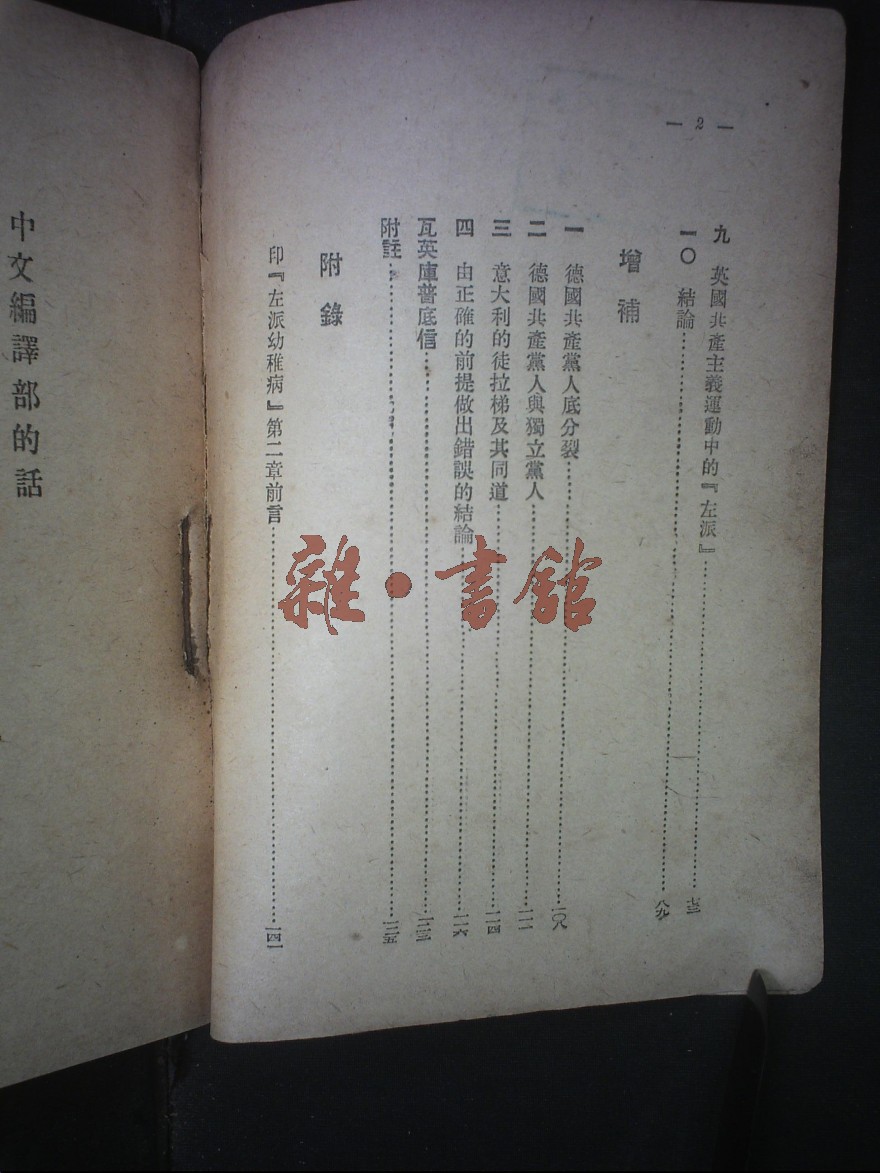 — 2 —
九 英國共產主義運動中的『左派』……七三
一〇 結論……八九
增補
一 德國共產黨人底分裂……一〇八
二 德國共產黨人與獨立黨人……一一一
三 意大利的徒拉梯及其同道……一一四
四 由正確的前提做出錯誤的結論……一一六
瓦英庫普底信……一二三
附註……一二五
附錄
印『左派幼稚病』第二章前言……一四一
中文編譯部的話
雜·書館